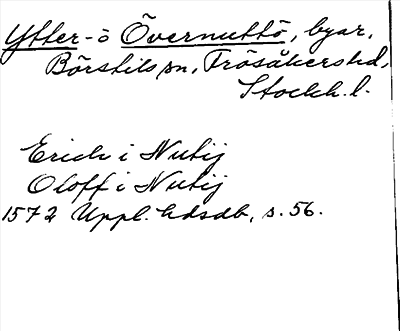 Ytter- o Övernuttö, byar,
Börstils sn, Frösåkers hd,
Stockh. l.
Erich i Nutij
Oloff i Nutij
1572 Uppl. hdsdb, s. 56.